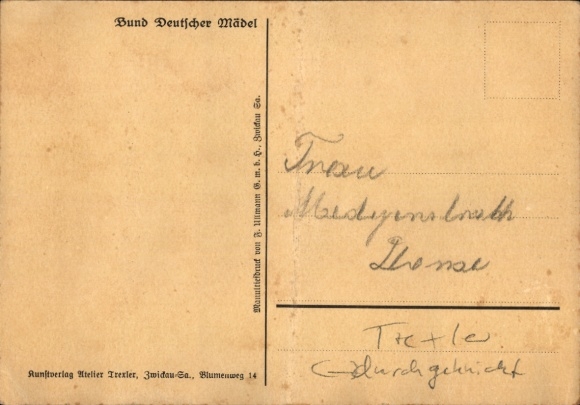 Bund Deutscher Mädel
Manultiefdruck von F. Ullmann G. m. b. H., Zwickau Sa.
Frau
Trexler
durchgeknickt
Kunstverlag Atelier Trexler, Zwickau-Sa., Blumenweg 14